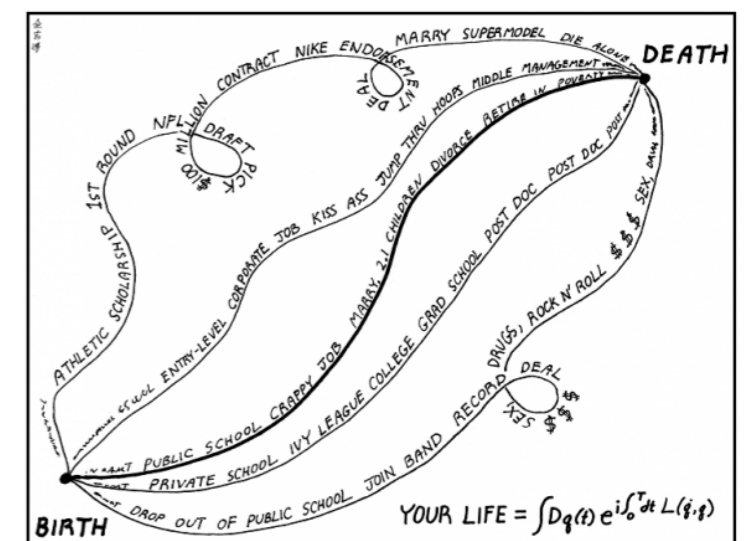 DEATH
ATHLETIC SCHOLARSHIP 1ST ROUND NFL DRAFT PICK $100 MILLION CONTRACT NIKE ENDORSEMENT DEAL MARRY SUPERMODEL DIE ALONE
ENTRY-LEVEL CORPORATE JOB KISS ASS JUMP THRU HOOPS MIDDLE MANAGEMENT
PUBLIC SCHOOL CRAPPY JOB MARRY, 2.1 CHILDREN DIVORCE RETIRE IN POVERTY
PRIVATE SCHOOL IVY LEAGUE COLLEGE GRAD SCHOOL POST DOC POST DOC POST
DROP OUT OF PUBLIC SCHOOL JOIN BAND RECORD DEAL $ $ $ SEX, DRUGS, ROCK N' ROLL $ $ $ SEX,
BIRTH
YOUR LIFE = ∫Dq(t) e^{i∫₀ᵀdt L(q̇,q)}